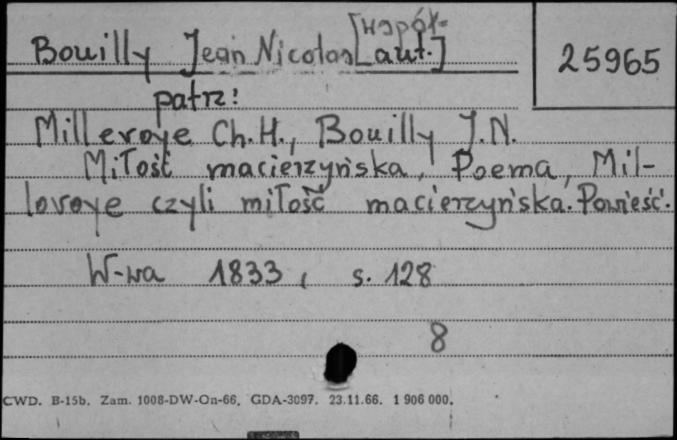 Bouilly Jean Nicolas [współ-
aut.]
25965
patrz:
Milleroye Ch. H., Bouilly J.N.
Miłość macierzyńska, Poema, Mil-
loroye czyli miłość macierzyńska. Powieść.
W-wa 1833, s. 128
8
CWD. B-15b. Zam. 1008-DW-On-66. GDA-3097. 23.11.66. 1 906 000.